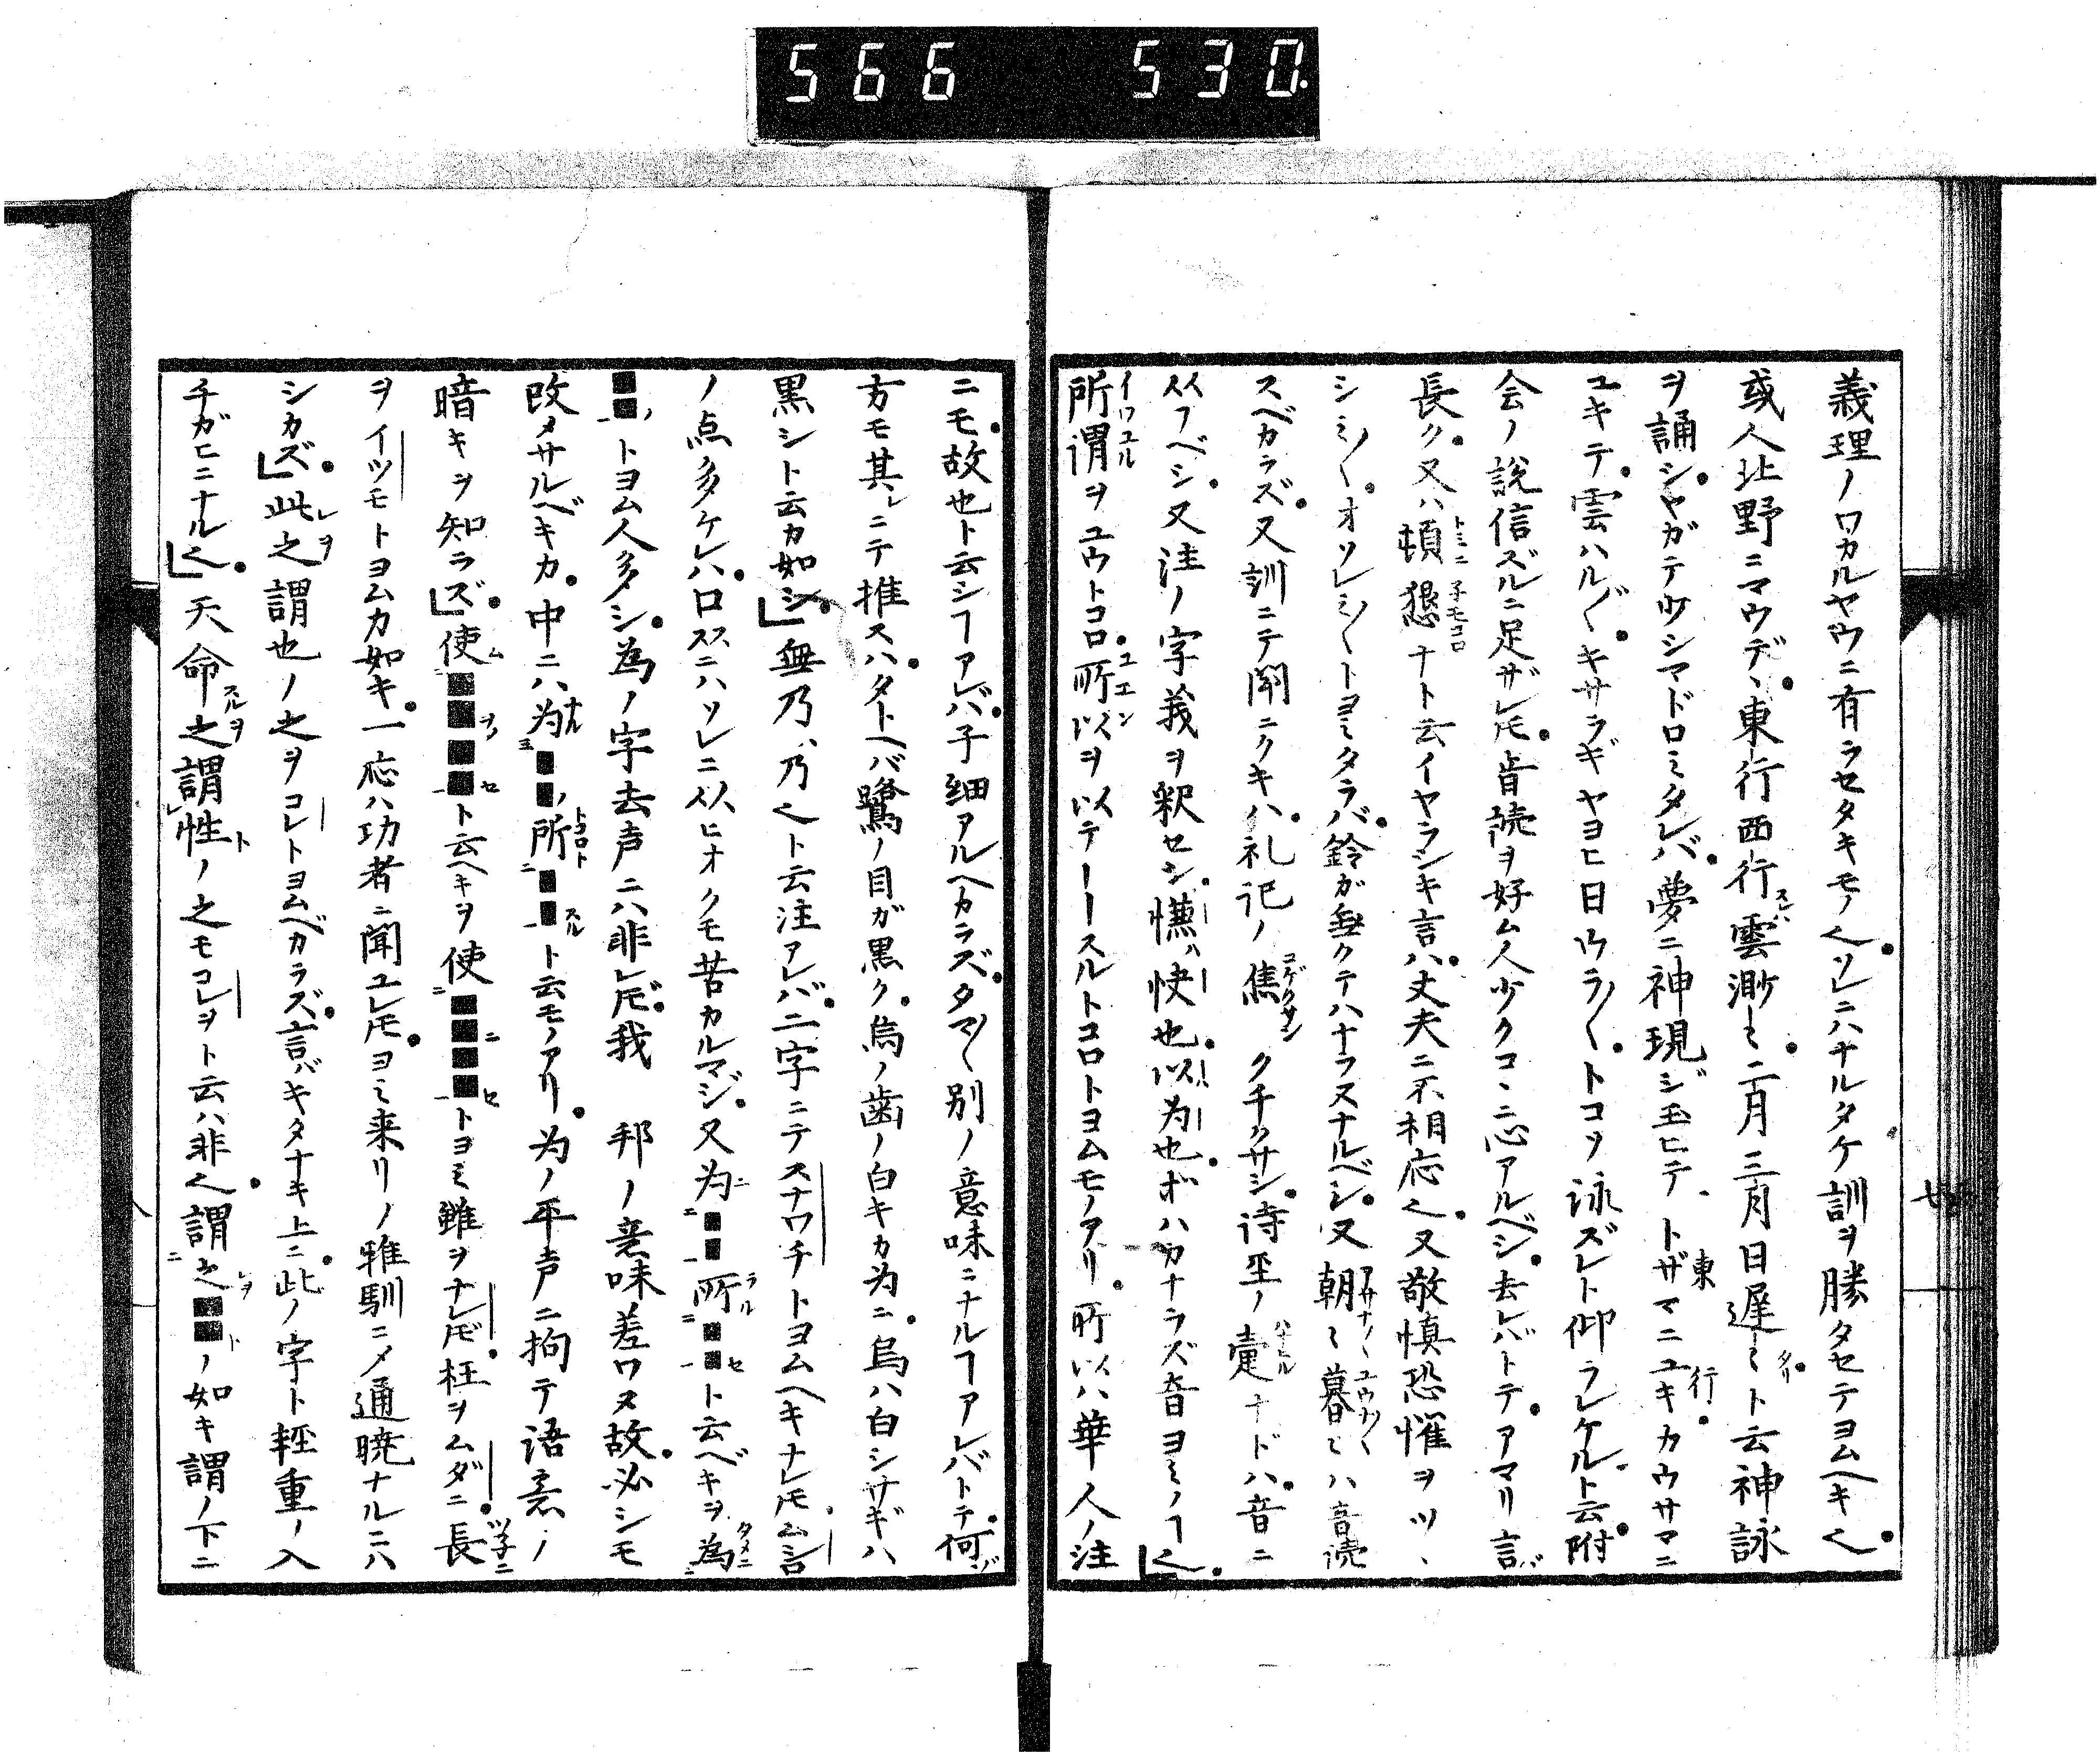 566 530.
義理ノワカルヤウニ有ラセタキモノ也ソレニハナルタケ訓ヲ勝タセテヨムヘキ也
或人北野ニマウデヽ東行西行雲渺ミ二月三月日遅ミト云神詠
ヲ誦シヤガテ少シマドロミタレバ夢ニ神現ジ玉ヒテトザマニユキカウサマニ
ユキテ雲ハル〴〵キサラギヤヨヒ日ウラ〳〵トコソ泳ズレト仰ラレケルト云附
会ノ説信ズルニ足ザレ𪜈音読ヲ好ム人少クコヽニ心アルベシ去レバトテアマリ言バ
長ク又ハ頓懇ナト云イヤラシキ言ハ丈夫ニ不相応也又敬慎恐懼ヲツヽ
シミ〳〵オソレミ〳〵トヨミタラバ鈴ガ無クテハナラヌナルベシ又朝ミ暮ミハ音読
スベカラズ又訓ニテ聞ニクキハ礼記ノ焦クチクサシ待坐ノ疐ナドハ音ニ
从フベシ又注ノ字義ヲ釈セシ慊ハ快也以為也ボハカナラズ音ヨミノヿ也
所謂ヲユウトコロ所以ヲ以テーースルトコロトヨムモノアリ所以ハ華人ノ注
ニモ故也ト云シヿアレバ子細アルヘカラズタマ〳〵別ノ意味ニナルヿアレバトテ何ゾ
方モ其レニテ推スハタトヘバ鷺ノ目ガ黒ク烏ノ歯ノ白キカ為ニ烏ハ白シサギハ
黒シト云カ如シ」無乃ハ乃也ト云注アレバ二字ニテスナワチトヨムヘキナレ𪜈ムシロ
ノ点多ケレハ口スヾニハソレニ从ヒオクモ苦カルマジ又为■■所■■ト云ベキヲ為
■■トヨム人多シ為ノ字去声ニハ非レ𪜈我邦ノ意味差ワヌ故必シモ
改メサルベキカ中ニハ为■■所■■ト云モノアリ为ノ平声ニ拘テ語意ノ
暗キヲ知ラズ」使■■■■ト云ヘキヲ使■■■■トヨミ雖ヲナレ𪜈枉ヲムダニ長
ヲイツモトヨムカ如キ一応ハ功者ニ聞ユレ𪜈ヨミ来リノ雅馴ニメ通暁ナルニハ
シカズ」此之謂也ノ之ヲコレトヨムベカラズ言バキタナキ上ニ此ノ字ト軽重ノ入
チガヒニナル也」天命之謂性ノ之モコレヲト云ハ非也謂之■■ノ如キ謂ノ下ニ